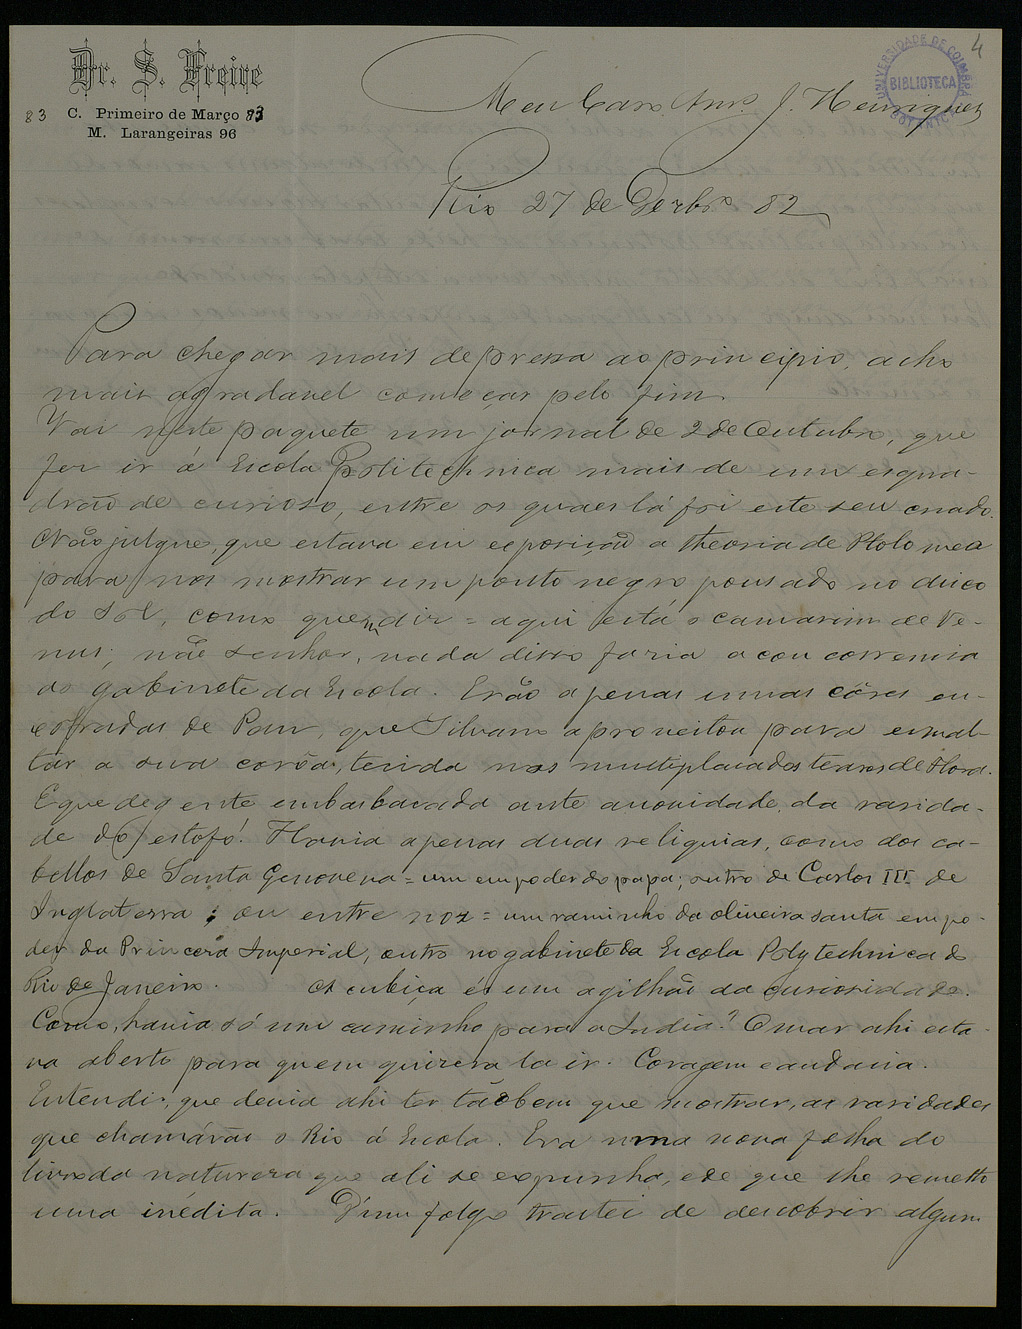 Dr. S. Freire
83 C. Primeiro de Março 83
M. Larangeiras 96
4
UNIVERSIDADE DE COIMBRA
BIBLIOTECA
BOTANICA
Meu Caro Amº J. Henriques
Rio 27 de Dezbrº 82
Para chegar mais depressa ao principio, acho
mais agradavel começar pelo fim.
Vai neste paquete um jornal de 2 de Outubro, que
fez ir á Escola Politechnica mais de um esqua-
drão de curioso, entre os quaes lá foi este seu criado.
Não julgue, que estava em exposição a theoria de Ptolomea
para nos mostrar um ponto negro pousado no disco
do Sol, como quem diz = aqui está o camarim de Ve-
nus; não senhor, nada disso fazia a concorrencia
do gabinete da Escola. Erão apenas umas côres en-
xofradas de Pan, que Silvano aproveitou para esmal-
tar a sua corôa, tecida nos multiplicados teares de Flora.
E que de gente embasbacada ante a novidade, da rarida-
de do estofo! Havia apenas duas reliquias, como dos ca-
bellos de Santa Genoveva = um em poder do papa; outro de Carlos III de
Inglaterra; ou entre nos = um raminho da oliveira santa em po-
der da Princeza Imperial, outro no gabinete da Escola Polytechnica do
Rio de Janeiro. A cubiça é um agilhão da curiosidade.
Como, havia só um caminho para a India? O mar ahi esta-
va aberto para quem quizera la ir. Coragem e audacia.
Entendi, que devia ahi ter tãobem que mostrar, as raridades
que chamárão o Rio á Escola. Era uma nova folha do
livro da natureza que ali se expunha, e de que lhe remetto
uma inédita. D'um folgo tratei de descobrir algum